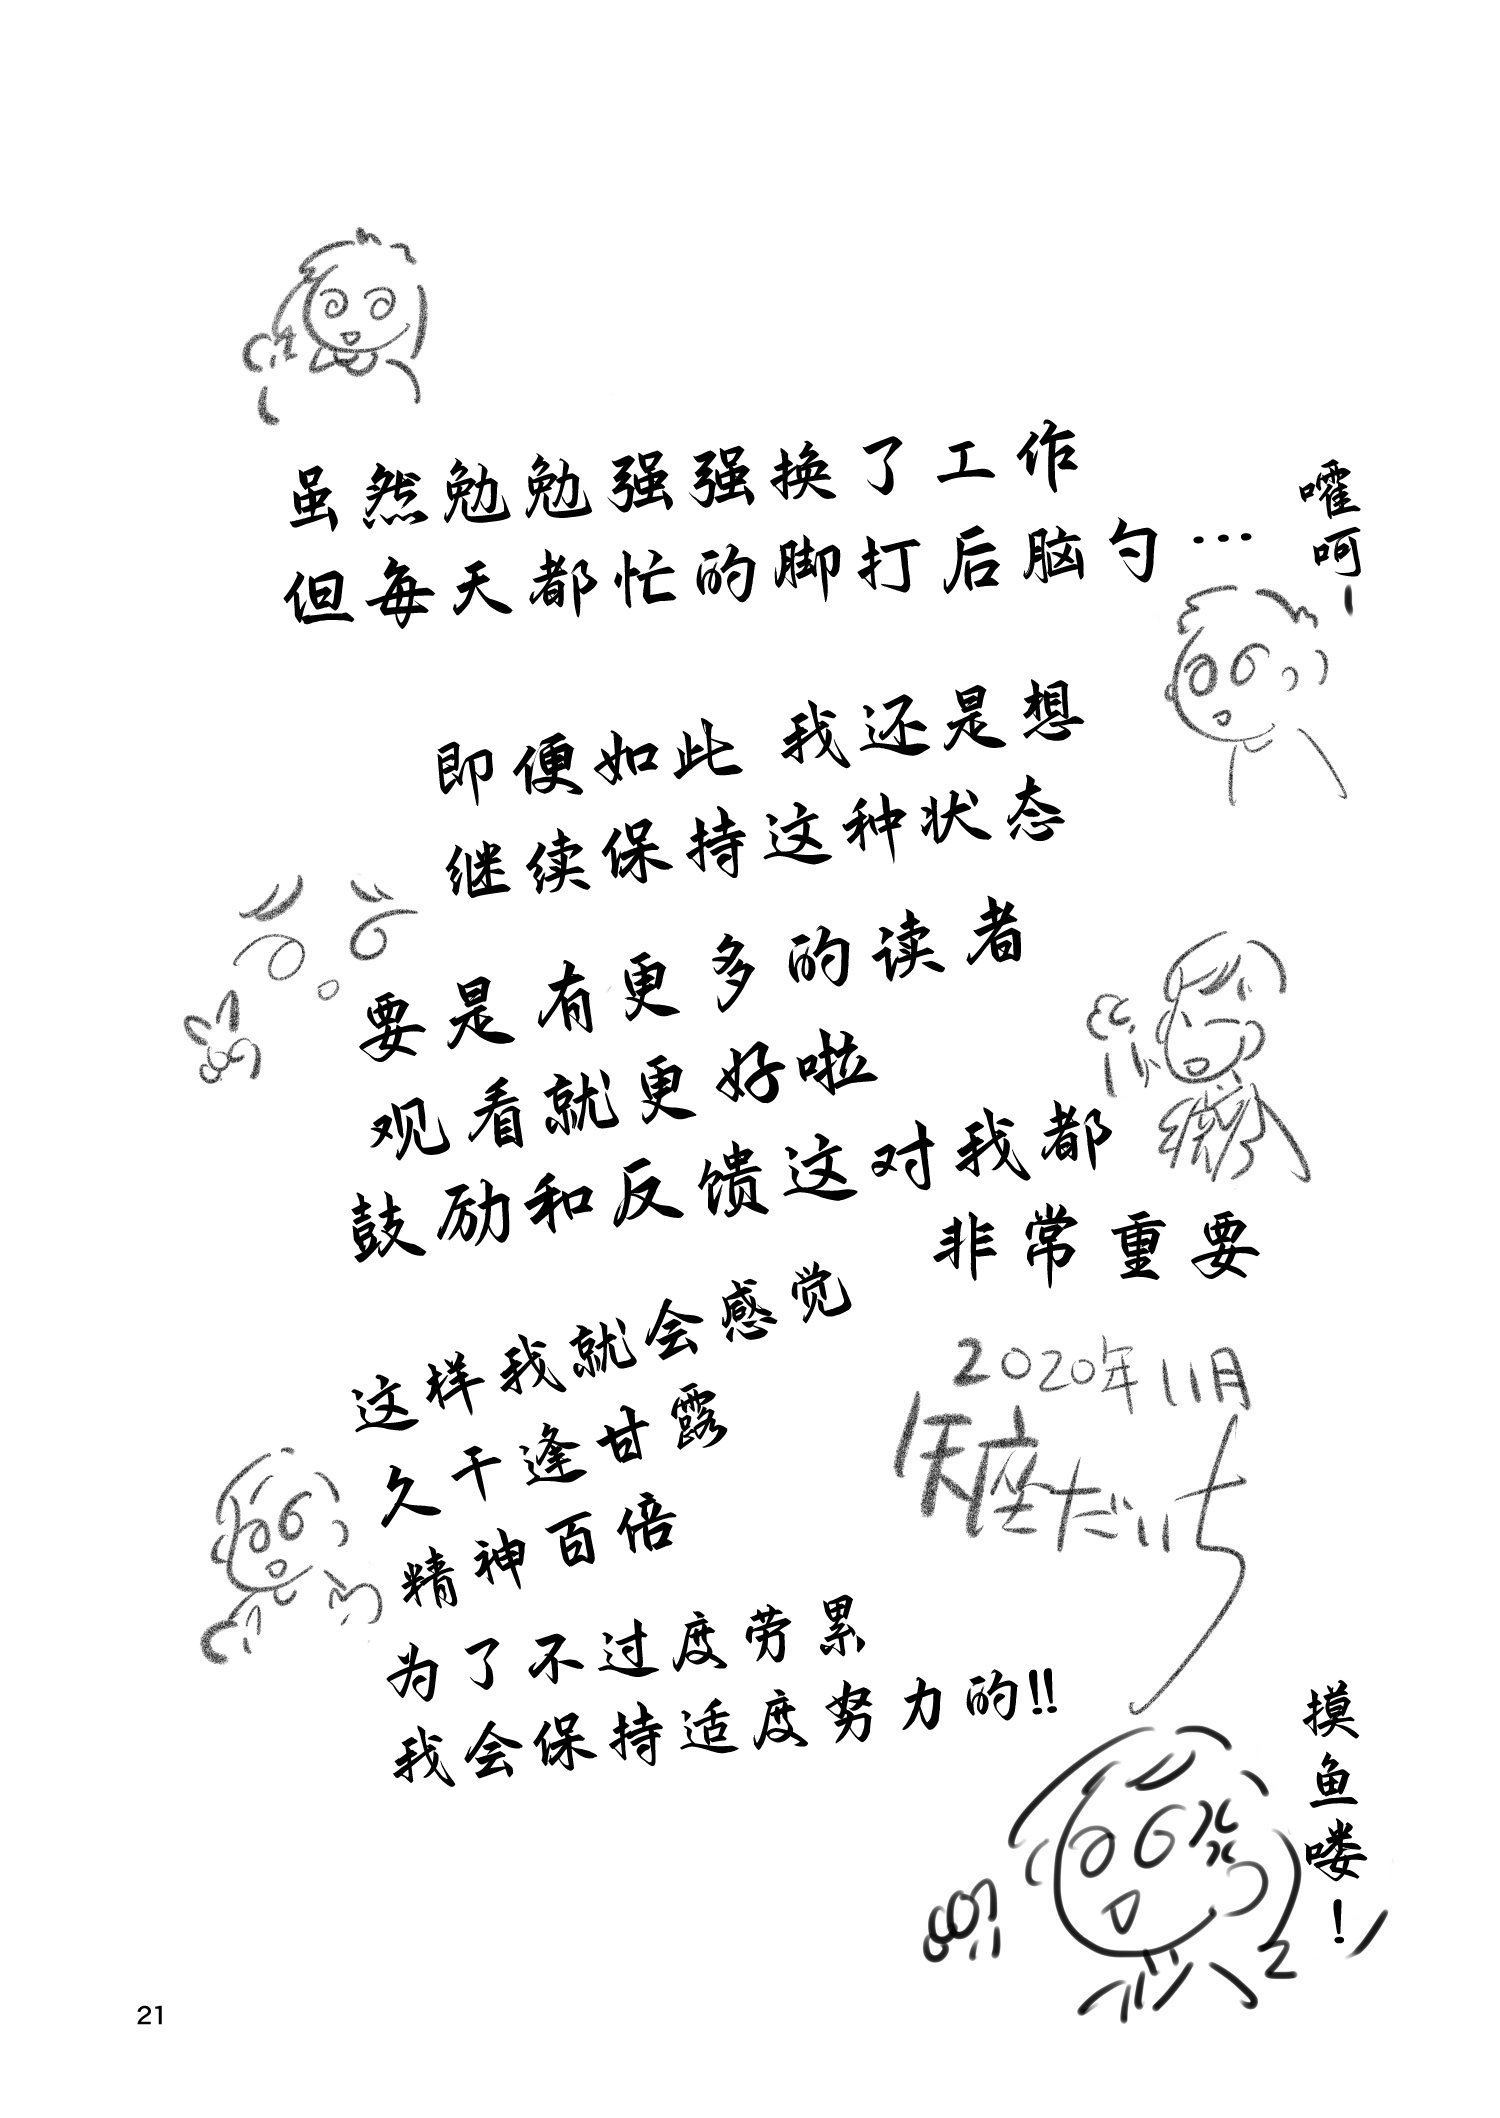 虽然勉勉强强换了工作
但每天都忙的脚打后脑勺…
嚯呵-
即便如此 我还是想
继续保持这种状态
要是有更多的读者
观看就更好啦
鼓励和反馈这对我都
非常重要
这样我就会感觉
久干逢甘露
精神百倍
为了不过度劳累
我会保持适度努力的!!
2020年11月
矢座だいち
摸鱼喽！
21